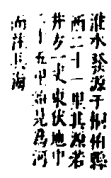 淮水發源于桐柏縣
西二十一里其源若
井方一丈東伏地中
二十五里始見為河
而注海